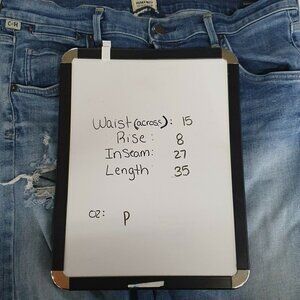 C-H
Waist (across): 15
Rise: 8
Inseam: 27
Length 35
oz: p